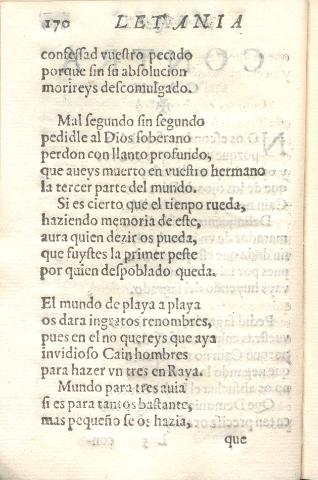 170 LETANIA
confessad vuestro pecado
porque sin su absolucion
morireys descomulgado.
Mal segundo sin segundo
pedidle al Dios soberano
perdon con llanto profundo,
que aueys muerto en vuestro hermano
la tercer parte del mundo.
Si es cierto que el tienpo rueda,
haziendo memoria de este,
aura quien deziros pueda,
que fuystes la primer peste
por quien despoblado queda.
El mundo de playa a playa
os dara ingratos renombres,
pues en el no quereys que aya
inuidioso Cain hombres
para hazer vn tres en Raya.
Mundo para tres auia
si es para tantos bastante,
mas pequeño se os hazia,
que